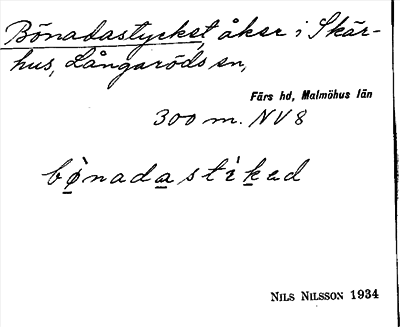 Bönadastycket, åker i Skär-
hus, Långaröds sn,
Färs hd, Malmöhus län
300 m. NV 8
bø̀nadastiked
NILS NILSSON 1934